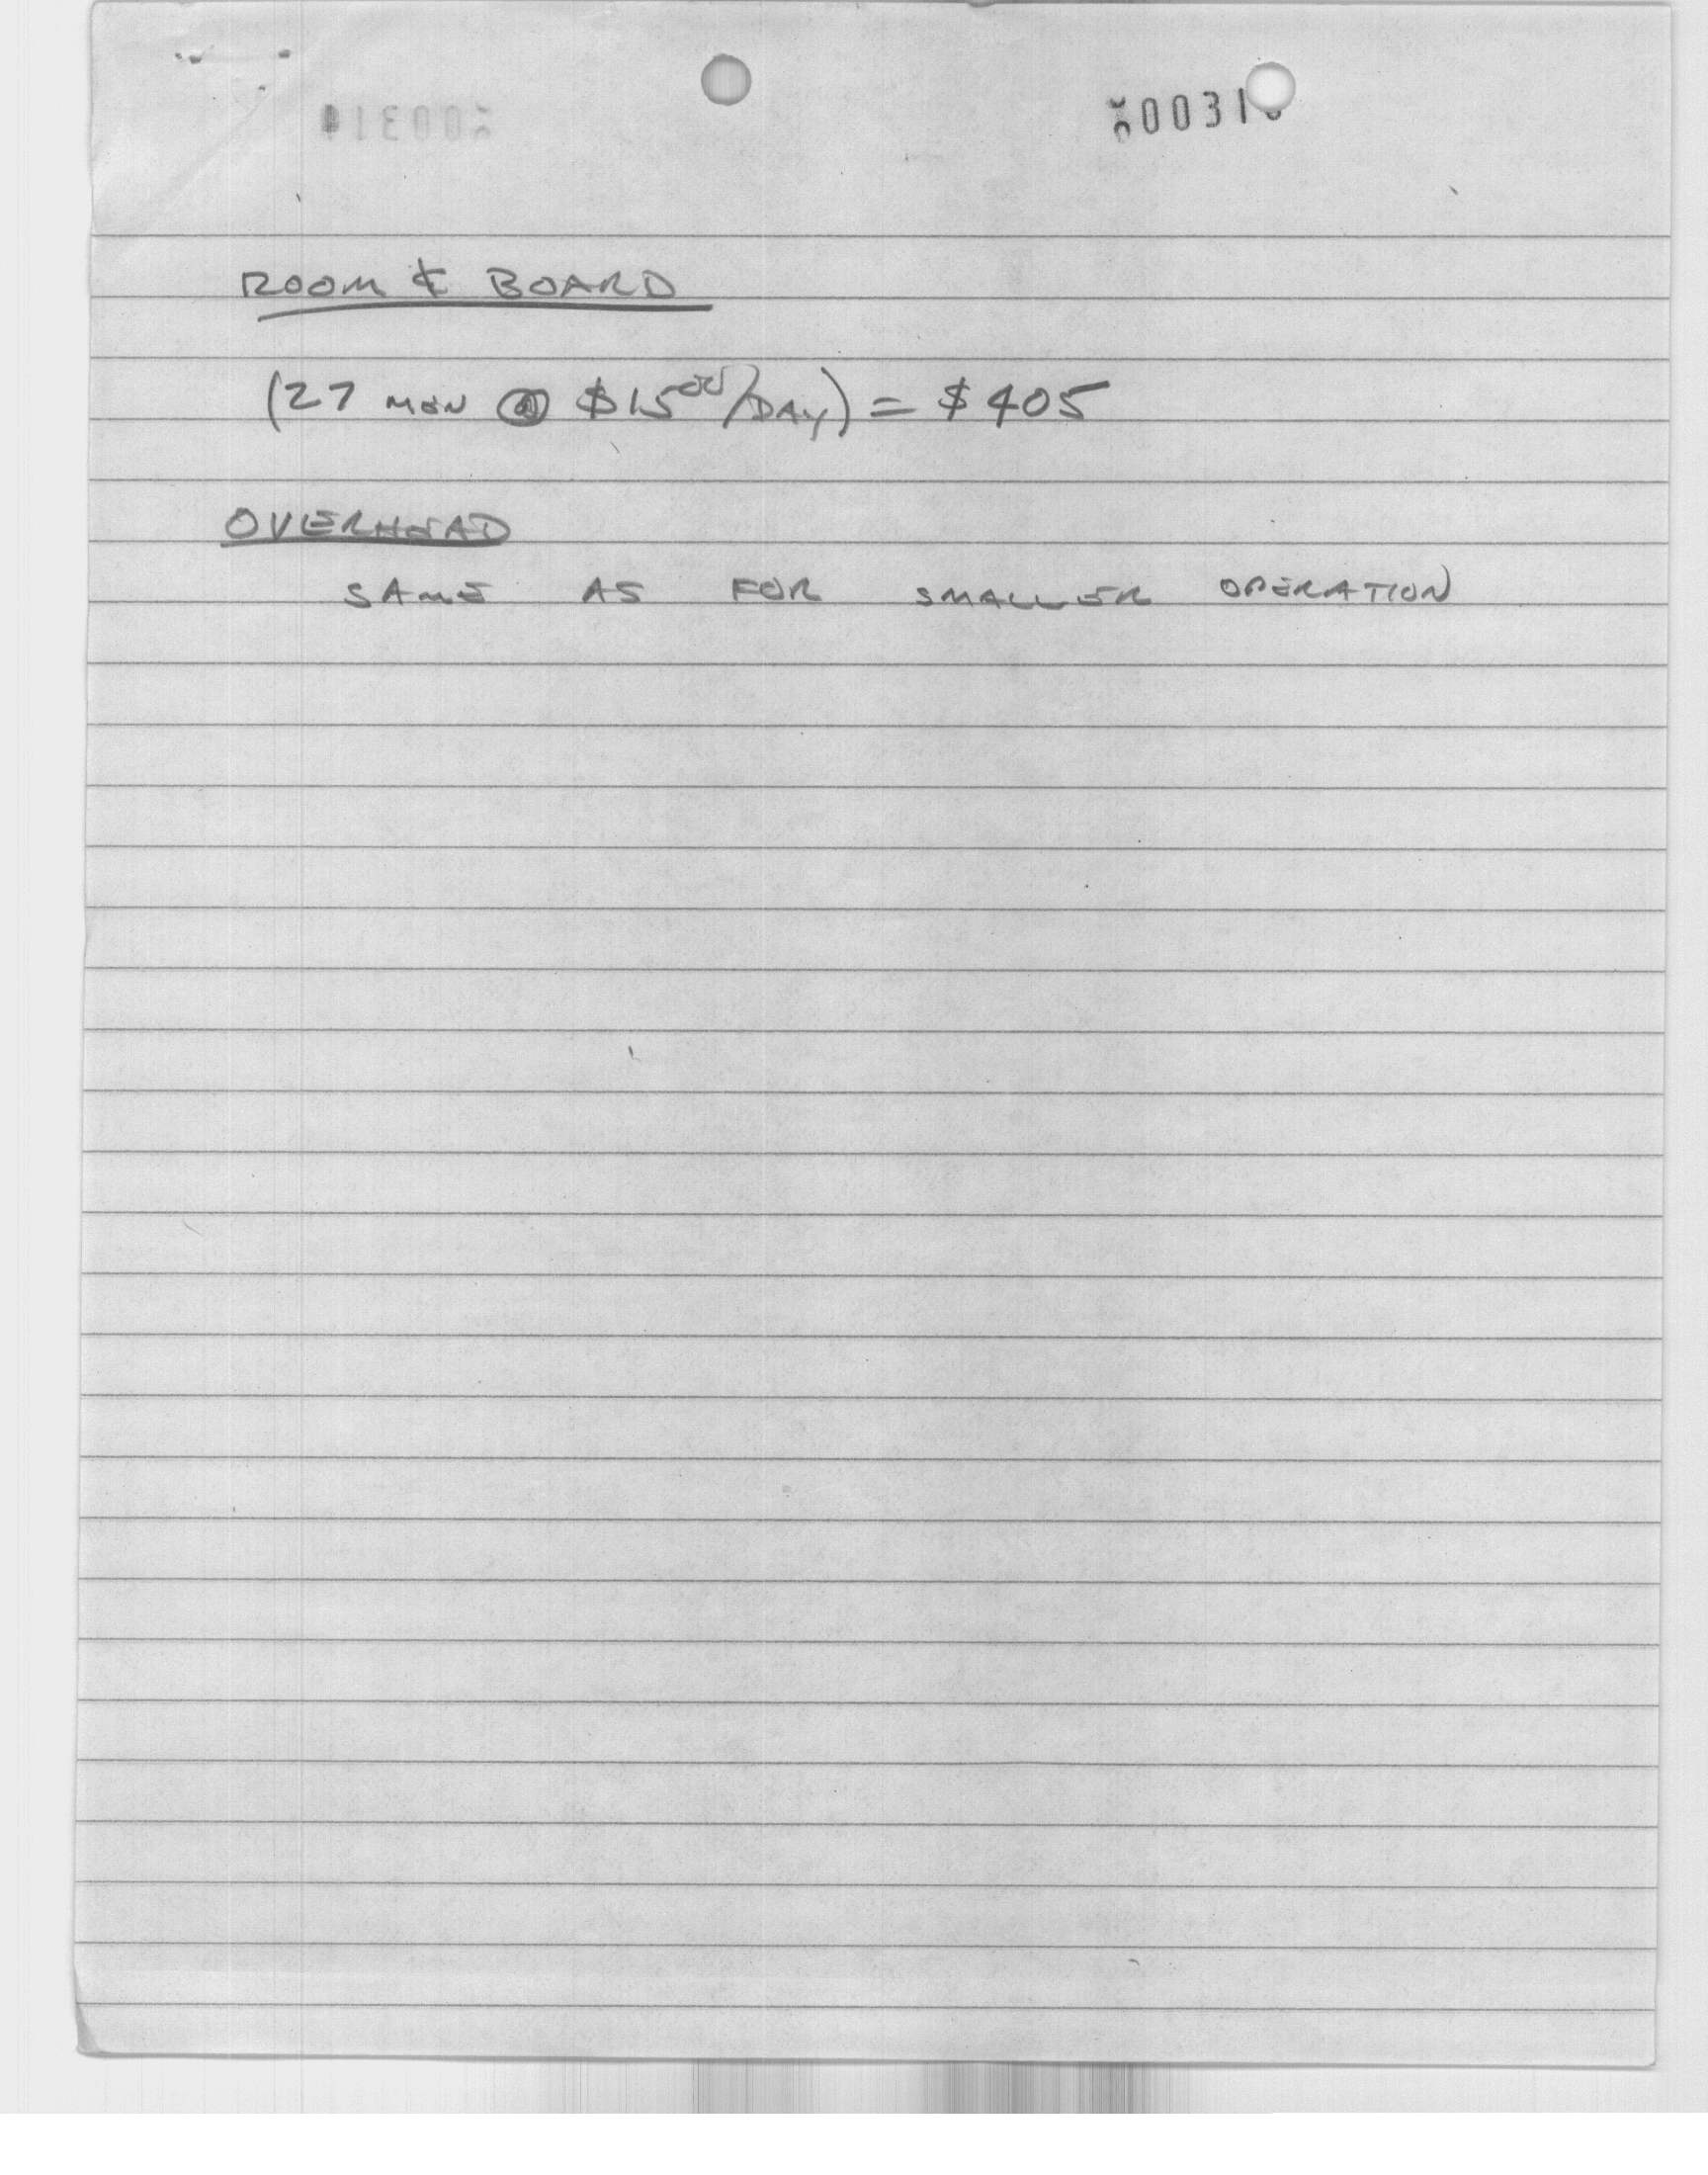 ROOM & BOARD
(27 MEN @ $1500/DAY) = $405
OVERHEAD
SAME AS FOR SMALLER OPERATION